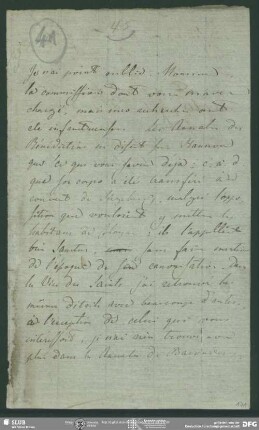 41
Je n'ai point oublié Monsieur
la commission dont vous m'avez
chargé, mais mes recherches ont
été infructueuses. Les Annales des
Bénédictins ne disent sur
que ce que vous savez déjà; c. à d.
que son corps a été transféré au
couvent de malgré l'oppo
sition que vouloient y mettre les
habitans de ; ils l'appellent
bien Sanctus, sans faire mention
de l'époque de sa canonisation. Dans
les Vies des Saints j'ai retrouvé les
mêmes détails avec beaucoup d'autres
à l'exception de celui qui vous
intéressoit; je n'ai rien trouvé non
plus dans les Annales de Baronius
SLUB
DFG